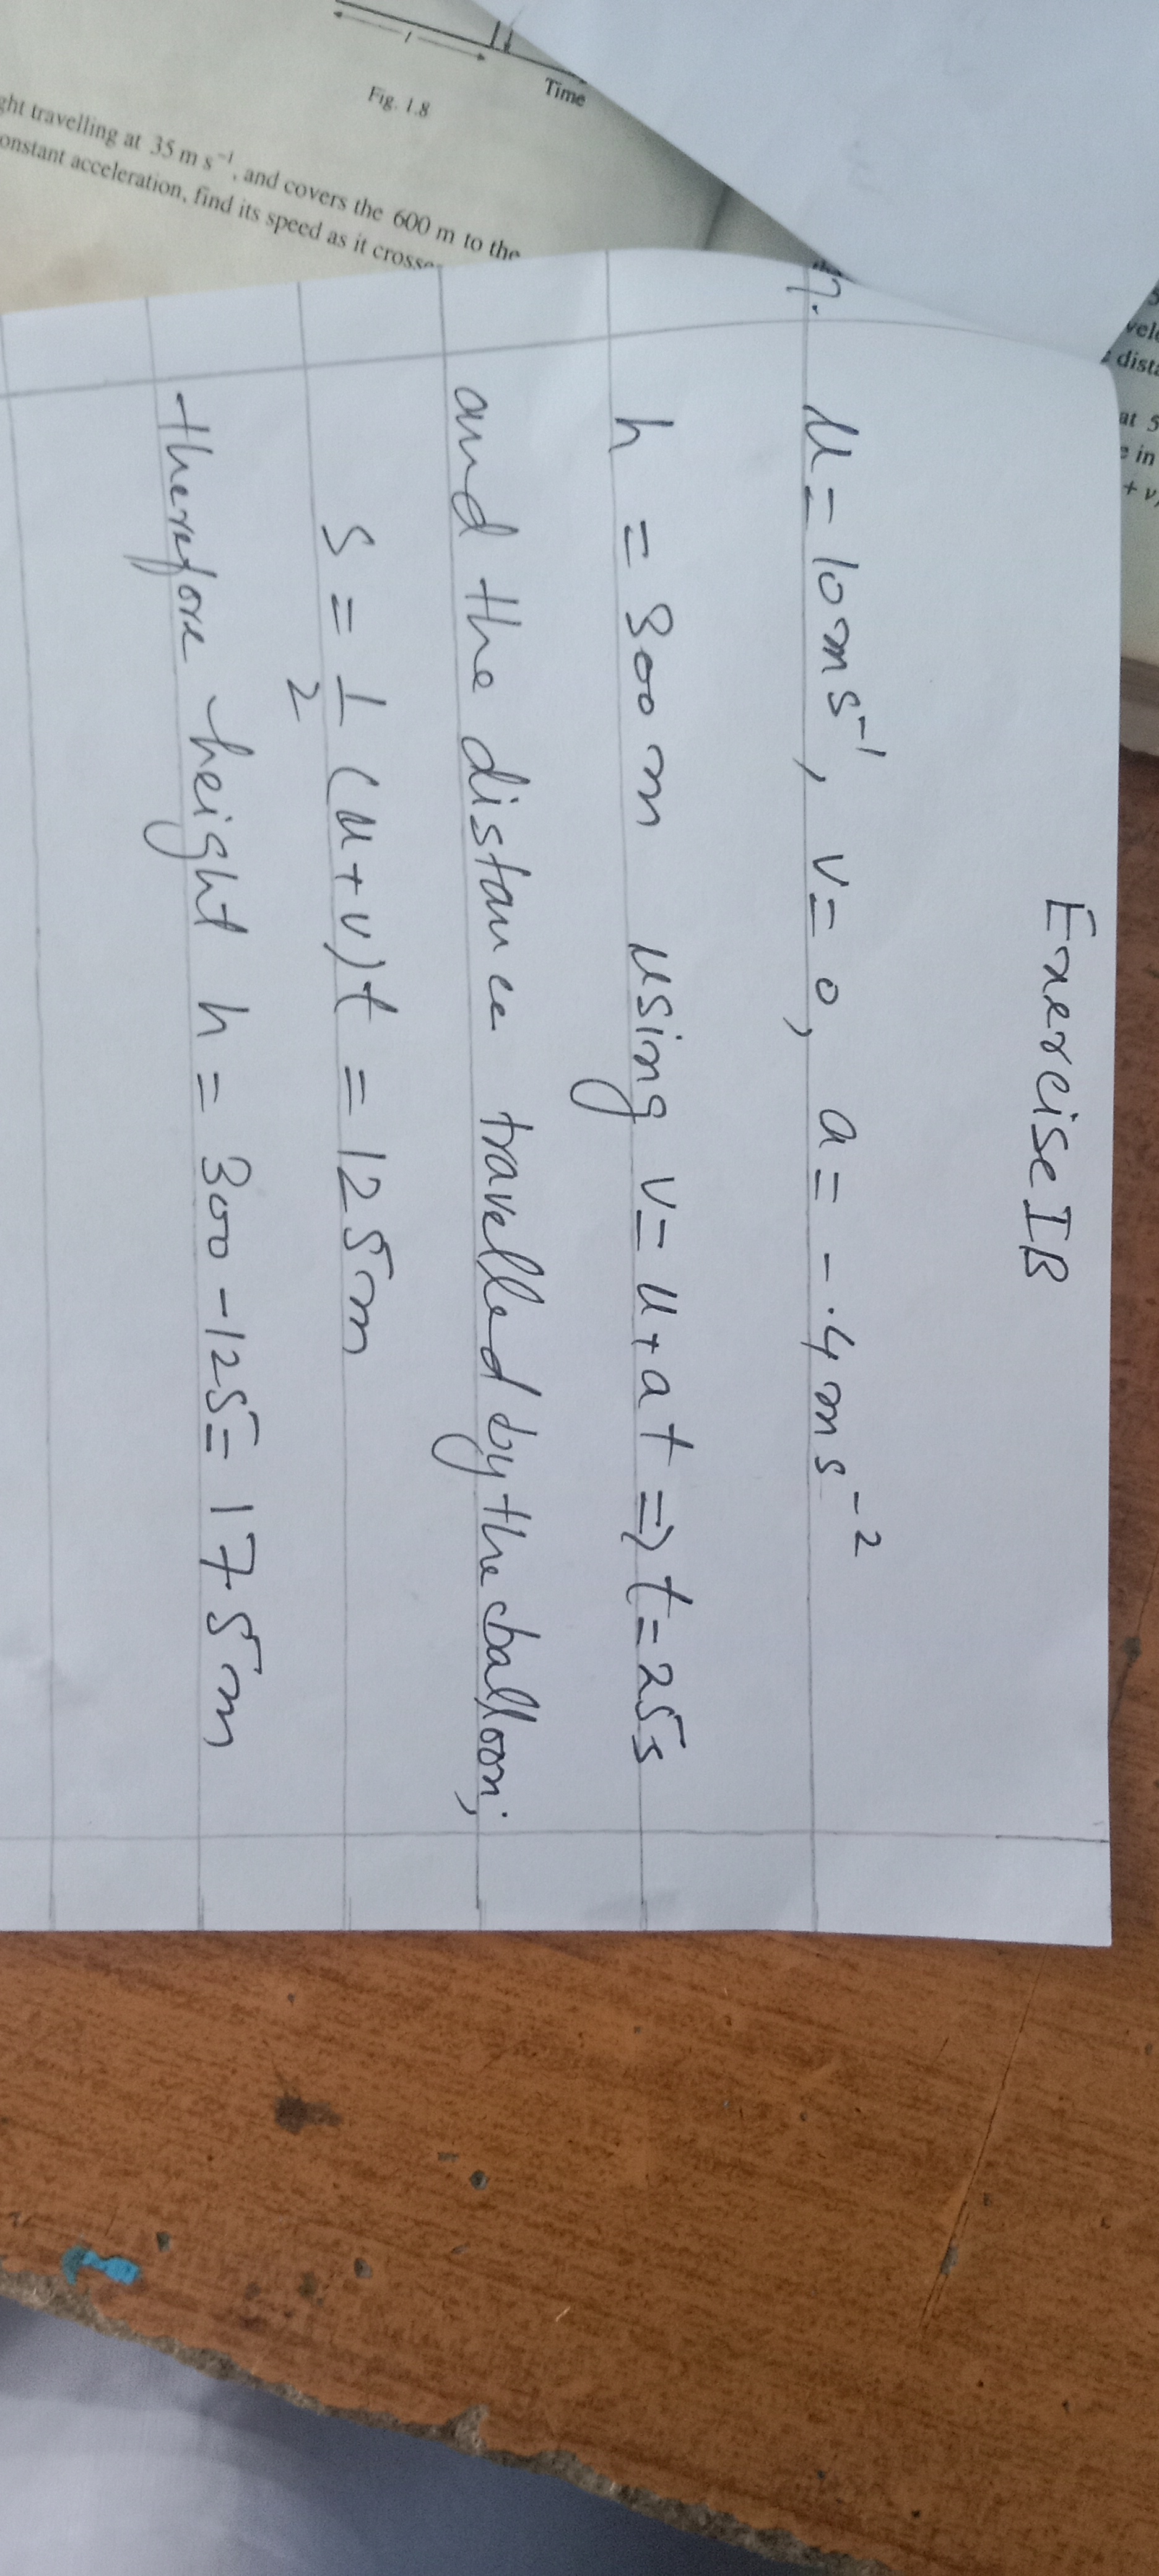 l
Time
Fig. 1.8
ght travelling at 35 m s⁻¹, and covers the 600 m to the
onstant acceleration, find its speed as it crosse
vel
dist
at 5
in
+ v
Exercise 1B
7. u = 10 m s⁻¹, v = 0, a = - .4 m s⁻²
h = 300 m using v = u + at => t = 25s
and the distance travelled by the balloon;
S = 1/2 (u + v)t = 125m
therefore height h = 300 - 125 = 175m